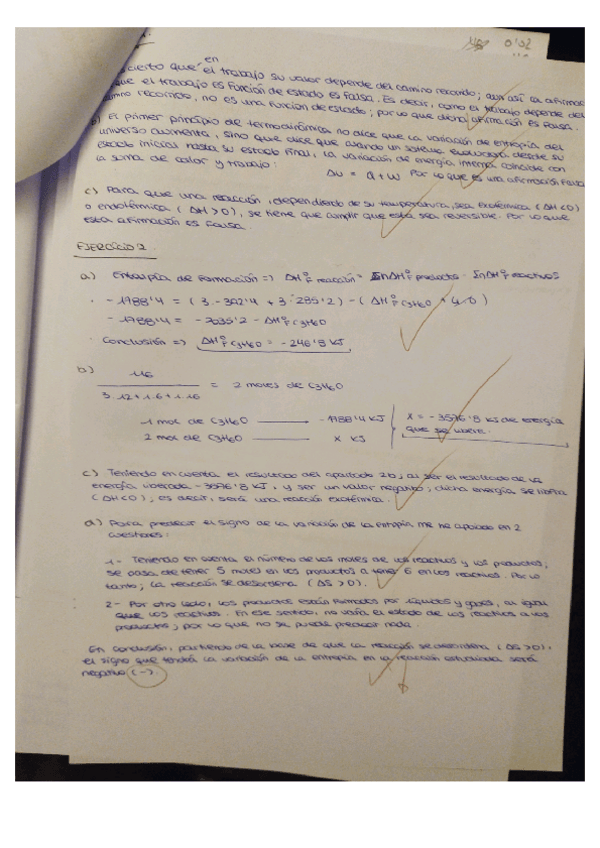 0'52
en
cierto que el trabajo su valor depende del camino recorrido; aun así la afirmac
que el trabajo es función de estado es falsa. Es decir, como el trabajo depende del
recorrido, no es una función de estado; por lo que dicha afirmación es falsa.
b) El primer principio de termodinámica no dice que la variación de entropía del
universo aumenta, sino que dice que cuando un sistema evoluciona desde su
estado inicial hasta su estado final, la variación de energía interna coincide con
la suma de calor y trabajo:
ΔU = Q + W Por lo que es una afirmación falsa
c) Para que una reacción, dependiendo de su temperatura, sea exotérmica (ΔH<0)
o endotérmica (ΔH>0), se tiene que cumplir que esta sea reversible. Por lo que
esta afirmación es falsa.
EJERCICIO 2
a) Entalpía de formación => ΔH°F reacción = ΣnΔH°F productos - ΣnΔH°F reactivos
· -1788'4 = (3·-392'4 + 3·285'2) - (ΔH°F C3H6O + 4·0)
- 1788'4 = -2035'2 - ΔH°F C3H6O
· Conclusión => ΔH°F C3H6O = -246'8 KJ
b)
116
3·12+1·6+1·16
= 2 moles de C3H6O
1 mol de C3H6O - 1788'4 KJ
2 mol de C3H6O x KJ
X = -3576'8 KJ de energía
que se libere.
c) Teniendo en cuenta el resultado del apartado 2b; al ser el resultado de la
energía liberada -3576'8 KJ, y ser un valor negativo; dicha energía se libera
(ΔH<0); es decir, será una reacción exotérmica.
d) Para predecir el signo de la variación de la entropía me he apoyado en 2
cuestiones:
1- Teniendo en cuenta el número de los moles de los reactivos y los productos;
se pasa de tener 5 moles en los productos a tener 6 en los reactivos. Por lo
tanto; la reacción se desordena (ΔS>0).
2- Por otro lado, los productos están formados por líquidos y gases, al igual
que los reactivos. En ese sentido, no varía el estado de los reactivos a los
productos; por lo que no se puede predecir nada.
En conclusión, partiendo de la base de que la reacción se desordena (ΔS>0),
el signo que tendrá la variación de la entropía en la reacción estudiada será
negativo (-).